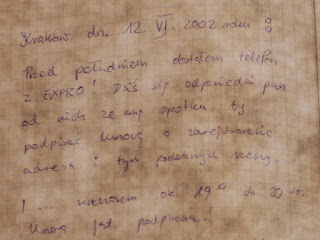 Kraków dn. 12. VI. 2002 roku
Przed południem dostałem telefon
z EXPRO! Dziś się odpowiedni pan
od nich ze mną spotka by
podpisać umowę o zarejestrowanie
adresu i tym podobnych rzeczy.
I ... wieczorem ok 19 do 20
Umowa jest podpisana!